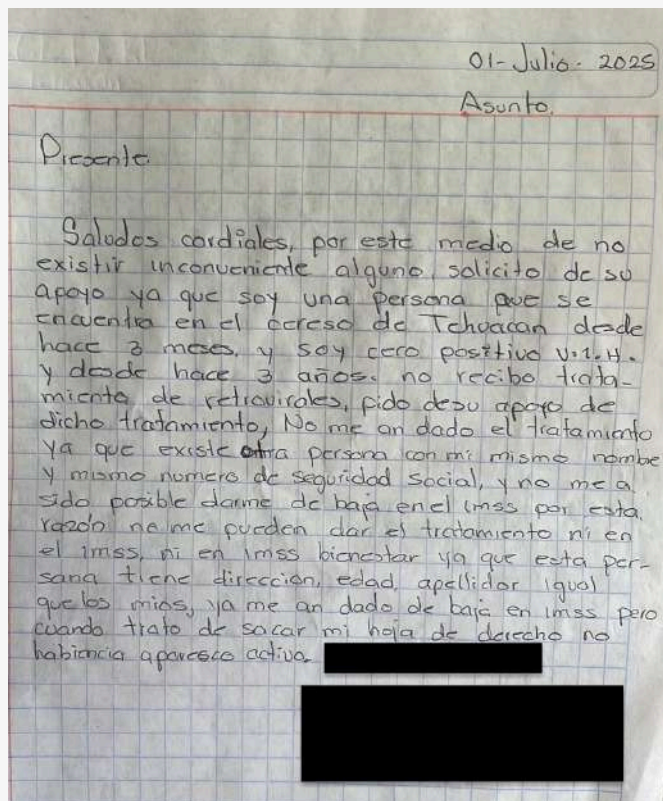 01-Julio. 2025
Asunto.
Presente.
Saludos cordiales, por este medio de no
existir inconveniente alguno solicito de su
apoyo ya que soy una persona que se
encuentra en el cereso de Tehuacan desde
hace 3 meses, y soy cero positivo V.I.H.
y desde hace 3 años. no recibo trata-
miento de retrovirales, pido desu apoyo de
dicho tratamiento, No me an dado el tratamiento
ya que existe otra persona con mi mismo nombre
y mismo numero de seguridad social, y no me a
sido posible darme de baja en el imss por esta
razón no me pueden dar el tratamiento ni en
el imss, ni en imss bienestar ya que esta per-
sona tiene dirección, edad, apellidor igual
que los mios, ya me an dado de baja en imss pero
cuando trato de sacar mi hoja de derecho no
habiencia aparesco activa.